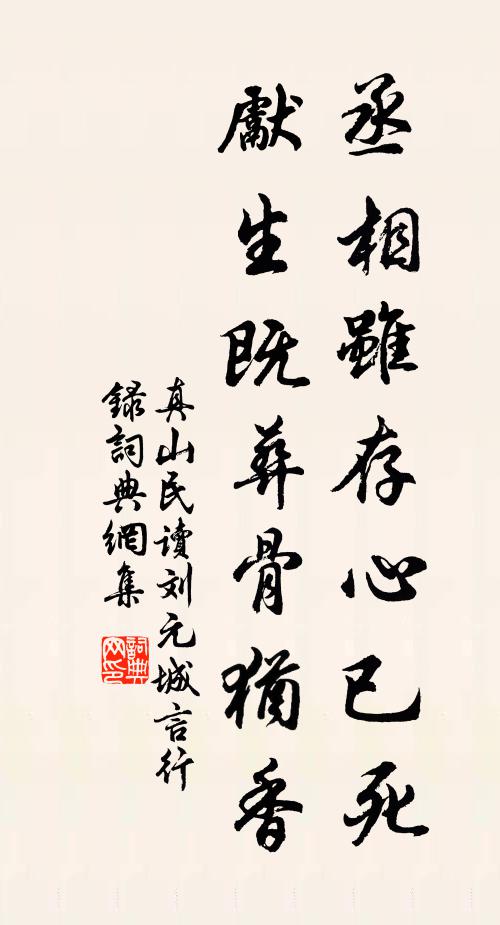 丞相雖存心已死
獻生既葬骨猶香
真山民读刘元城言行
錄詞典網集
詞典
网印